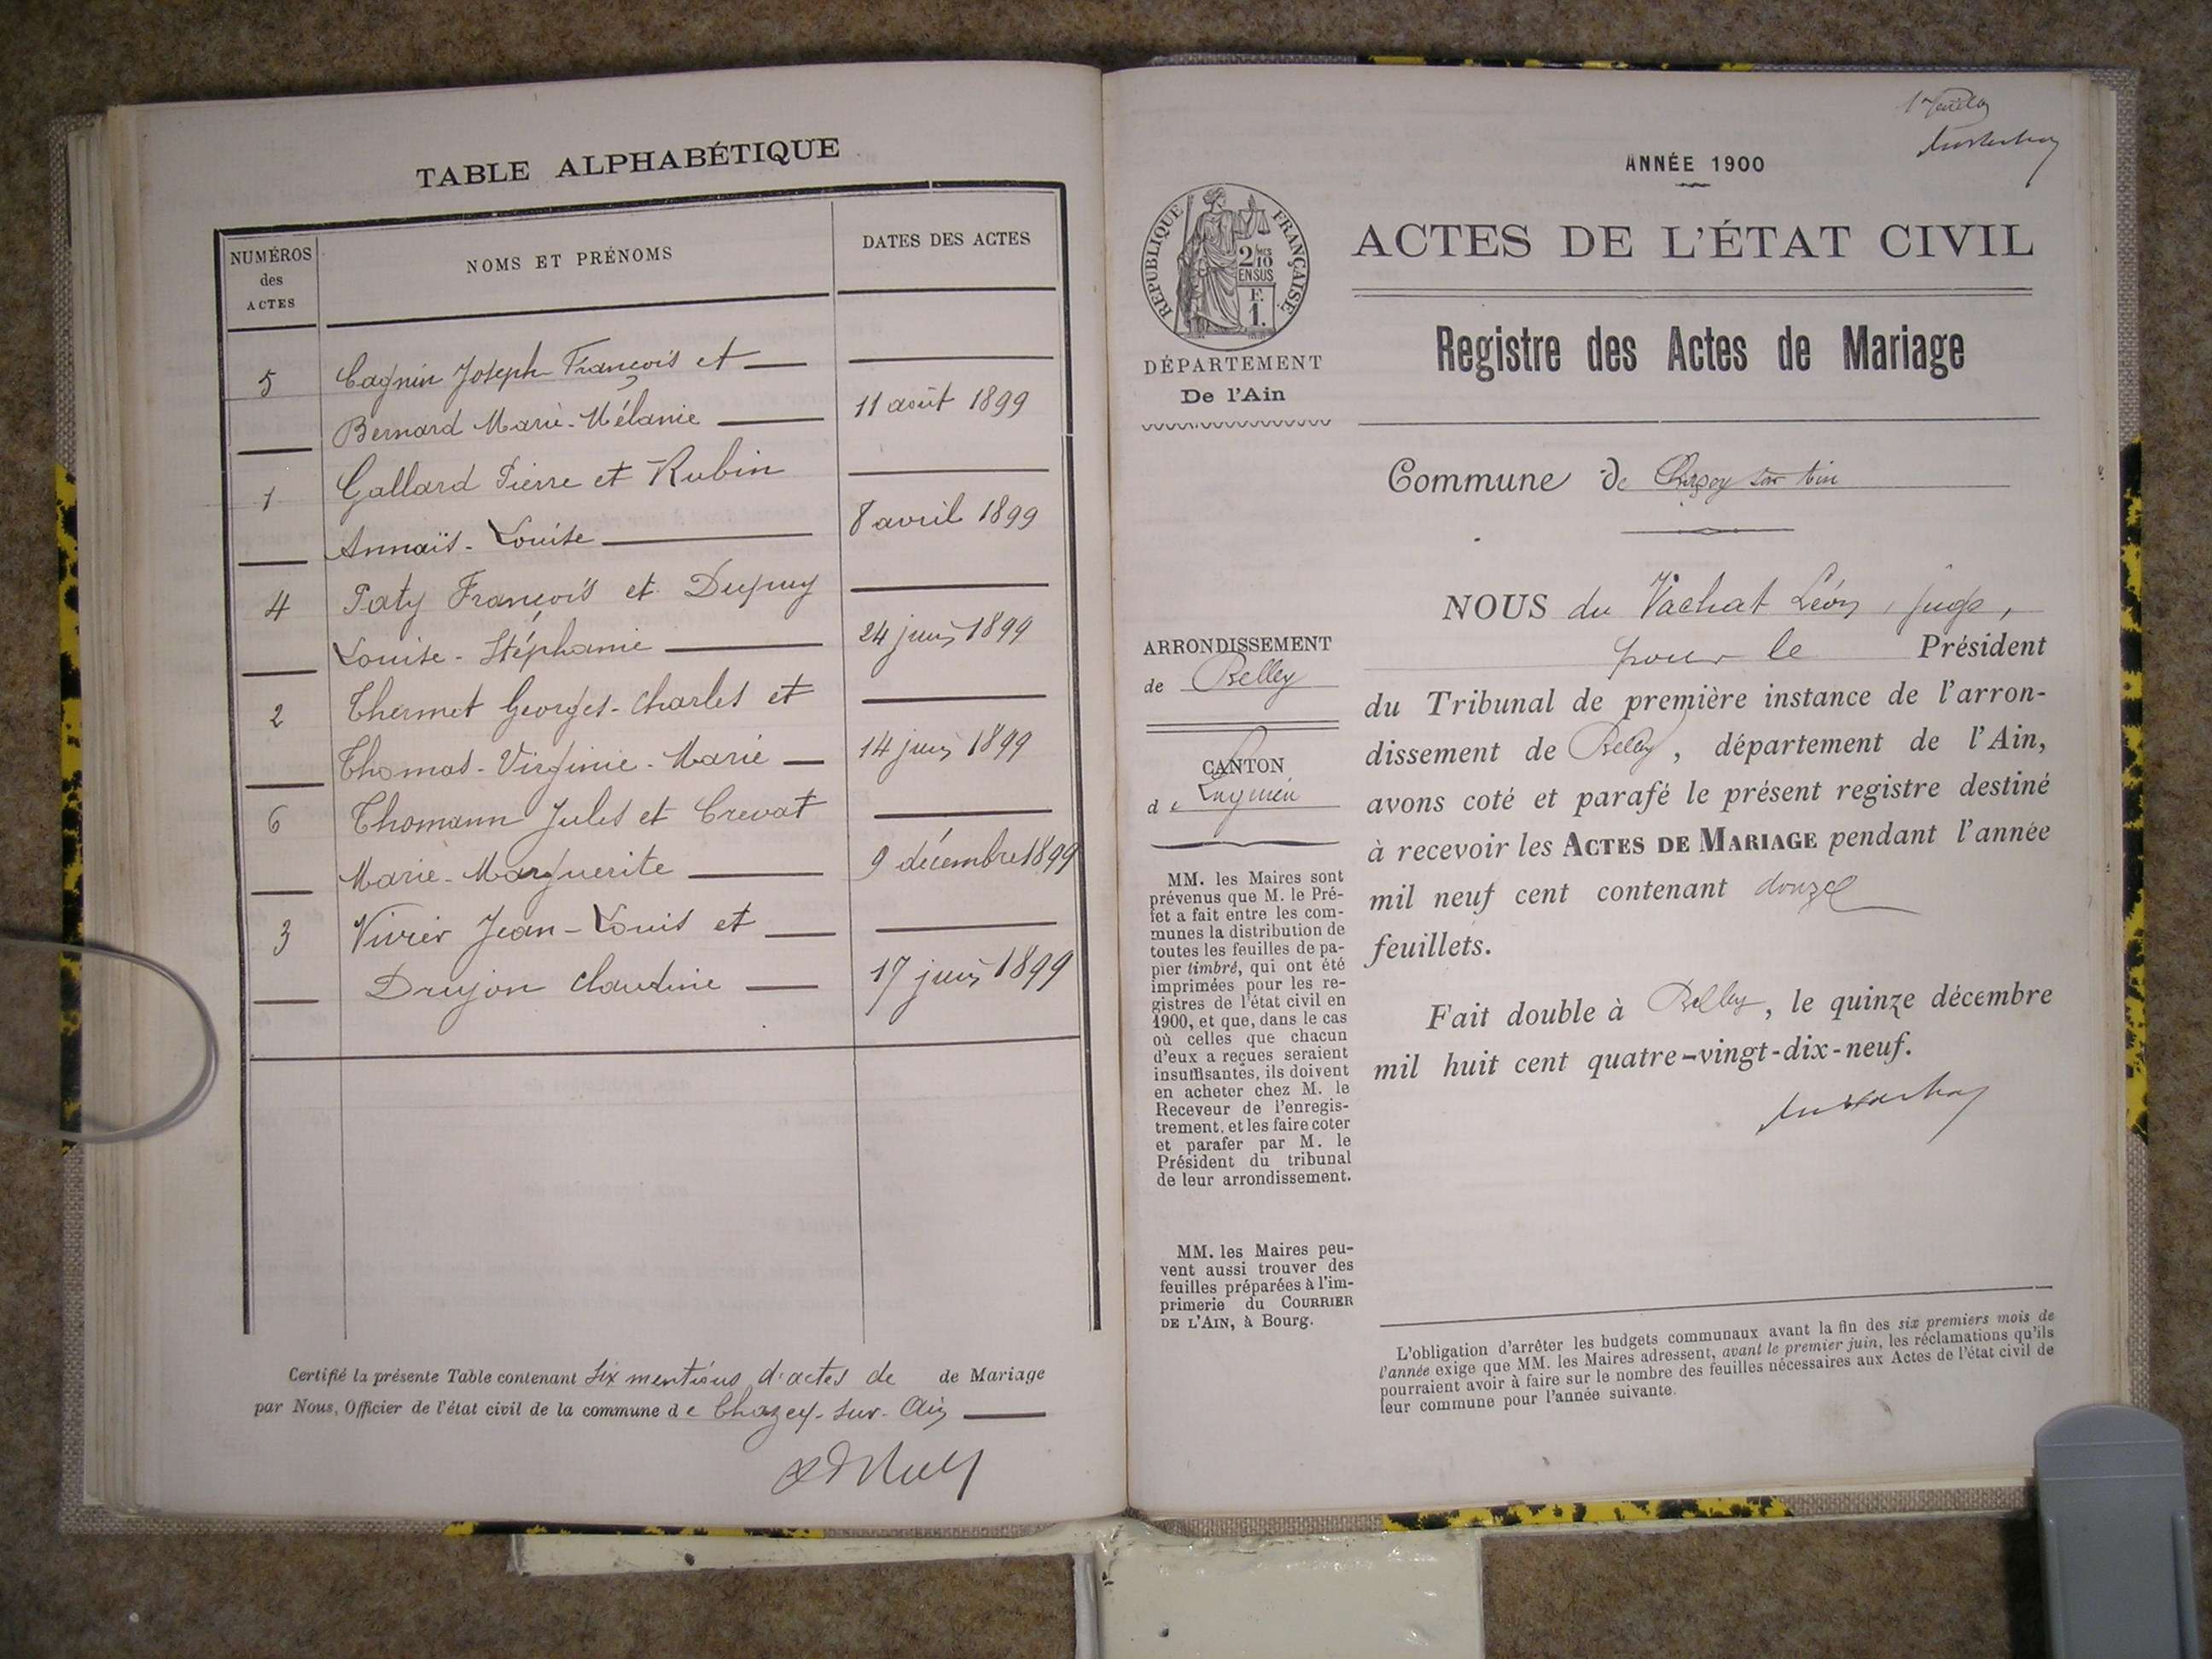 TABLE ALPHABÉTIQUE
NUMÉROS
des
ACTES
NOMS ET PRÉNOMS
DATES DES ACTES
5 Cagnin Joseph-François et
Bernard Marie-Mélanie 11 août 1899
1 Gallard Pierre et Rubin
Annaïs-Louise 8 avril 1899
4 Paty François et Dupuy
Louise-Stéphanie 24 juin 1899
2 Thermet Georges-Charles et
Thomas-Virginie-Marie 14 juin 1899
6 Thomann Jules et Crevat
Marie-Marguerite 9 décembre 1899
3 Vivier Jean-Louis et
Drujon Claudine 17 juin 1899
Certifié la présente Table contenant six mentions d'actes de de Mariage
par Nous, Officier de l'état civil de la commune de Chazey-sur-Ain
ANNÉE 1900
RÉPUBLIQUE FRANÇAISE
2/10
EN SUS
F.
1.
ACTES DE L'ÉTAT CIVIL
DÉPARTEMENT
De l'Ain
Registre des Actes de Mariage
Commune de Chazey sur Ain
ARRONDISSEMENT
de Belley
CANTON
de Lagnieu
MM. les Maires sont
prévenus que M. le Pré-
fet a fait entre les com-
munes la distribution de
toutes les feuilles de pa-
pier timbré, qui ont été
imprimées pour les re-
gistres de l'état civil en
1900, et que, dans le cas
où celles que chacun
d'eux a reçues seraient
insuffisantes, ils doivent
en acheter chez M. le
Receveur de l'enregis-
trement, et les faire coter
et parafer par M. le
Président du tribunal
de leur arrondissement.
MM. les Maires peu-
vent aussi trouver des
feuilles préparées à l'im-
primerie du COURRIER
DE L'AIN, à Bourg.
NOUS du Vachat Léon, juge,
pour le Président
du Tribunal de première instance de l'arron-
dissement de Belley, département de l'Ain,
avons coté et parafé le présent registre destiné
à recevoir les ACTES DE MARIAGE pendant l'année
mil neuf cent contenant douze
feuillets.
Fait double à Belley, le quinze décembre
mil huit cent quatre-vingt-dix-neuf.
L'obligation d'arrêter les budgets communaux avant la fin des six premiers mois de
l'année exige que MM. les Maires adressent, avant le premier juin, les réclamations qu'ils
pourraient avoir à faire sur le nombre des feuilles nécessaires aux Actes de l'état civil de
leur commune pour l'année suivante.